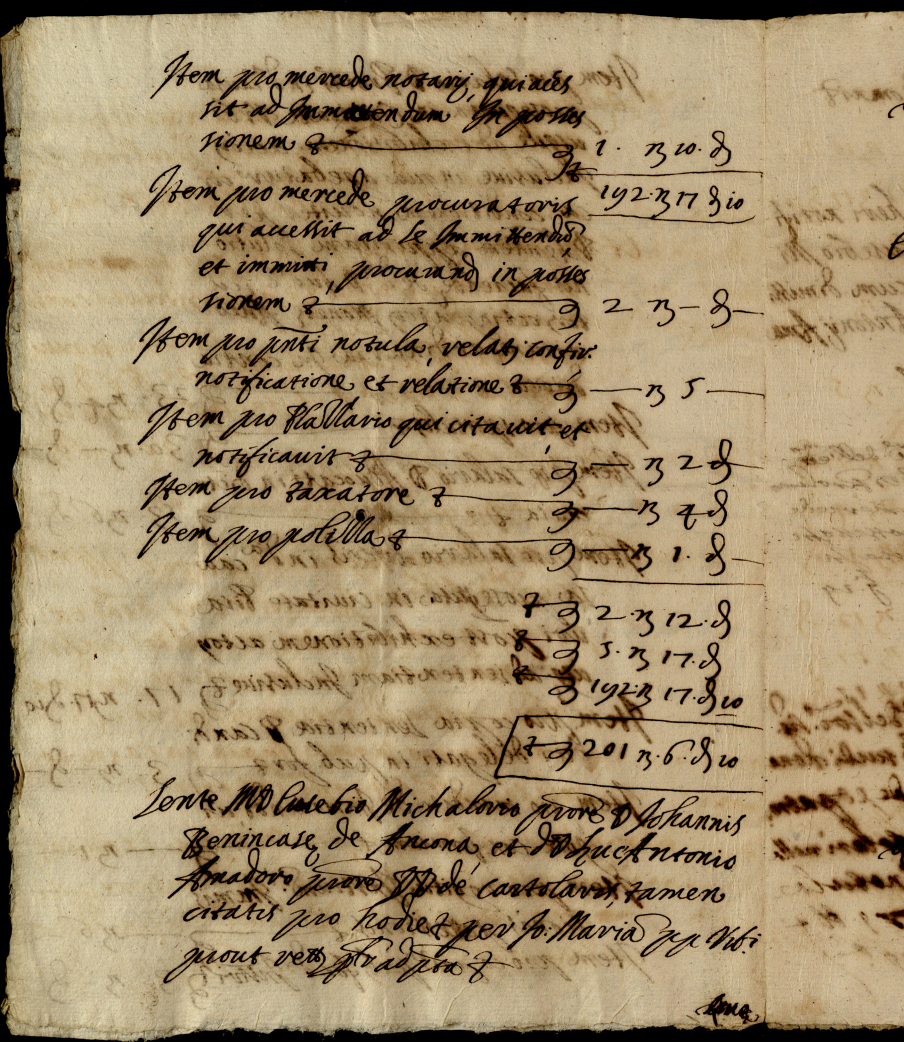 Item pro mercede notarij, qui acces
sit ad Immittendum In posses
sionem 1. 10.
192 17 10
Item pro mercede procuratoris
qui accessit ad se Immittendũ
et immitti, procurand in posses
sionem 2 — —
Item pro pñti notula, relat confir:
notificatione et relatione — 5 —
Item pro qui citavit et
notificavit — 2
Item pro taxatore — 4
Item pro polissa — 1.
2. 12.
5. 17.
192 17. 10
201 6. 10
D Eusebio Michalorio prore D Johannis
Benincase de Ancona, et Luc Antonio
Amadoro prore DD de cartolaris, tamen
citatis pro hodie per Jo: Mariã pp Urbi
prout